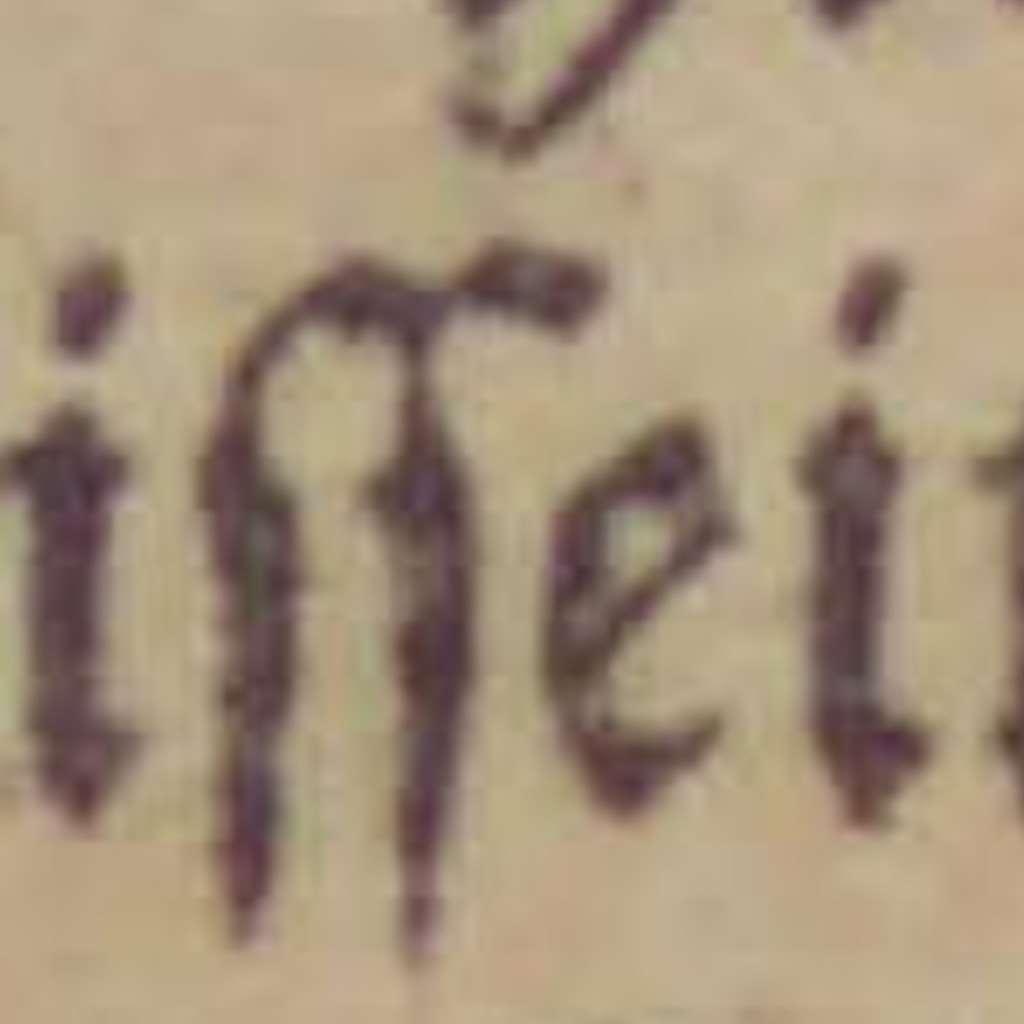 iſſei